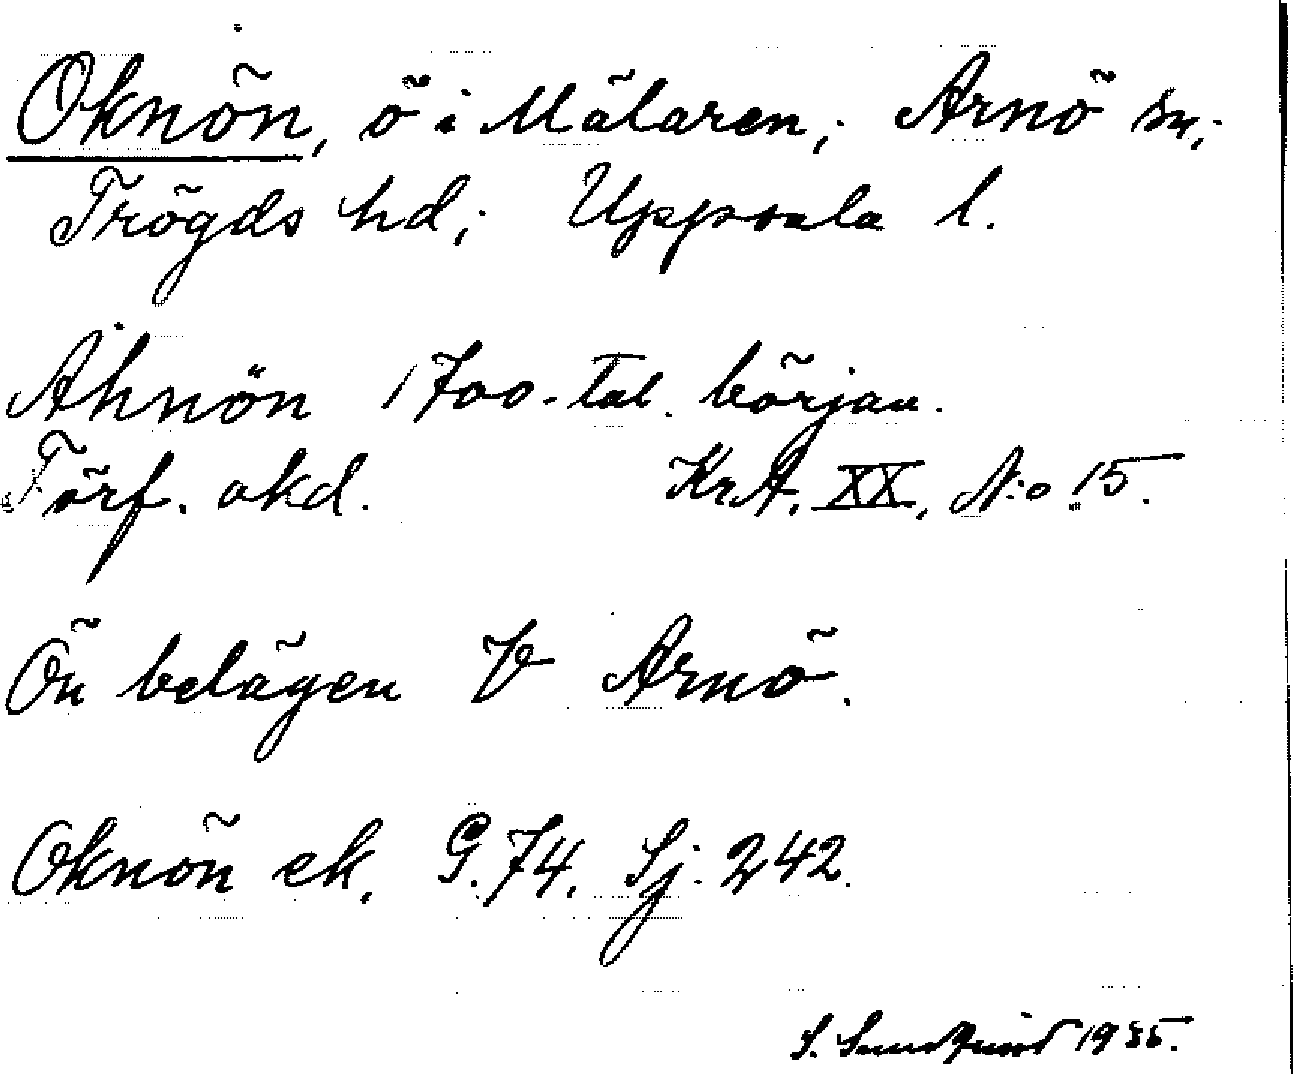 Oknön, ö i Mälaren; Arnö sn;
Trögds hd; Uppsala l.
Åhnön 1700-tal. början.
Förf. okd. KrA. XX, N:o 15.
Ön belägen V Arnö.
Oknön ek. G. 74. Sj. 242.
S. Sundqvist 1935.